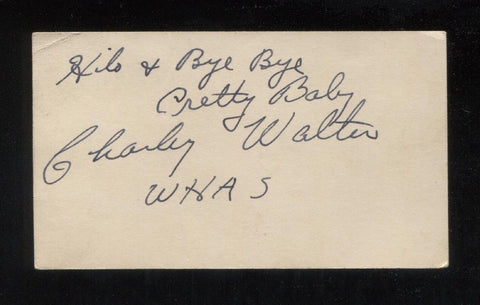 Hilo & Bye Bye
Pretty Baby
Charley Walter
WHAS